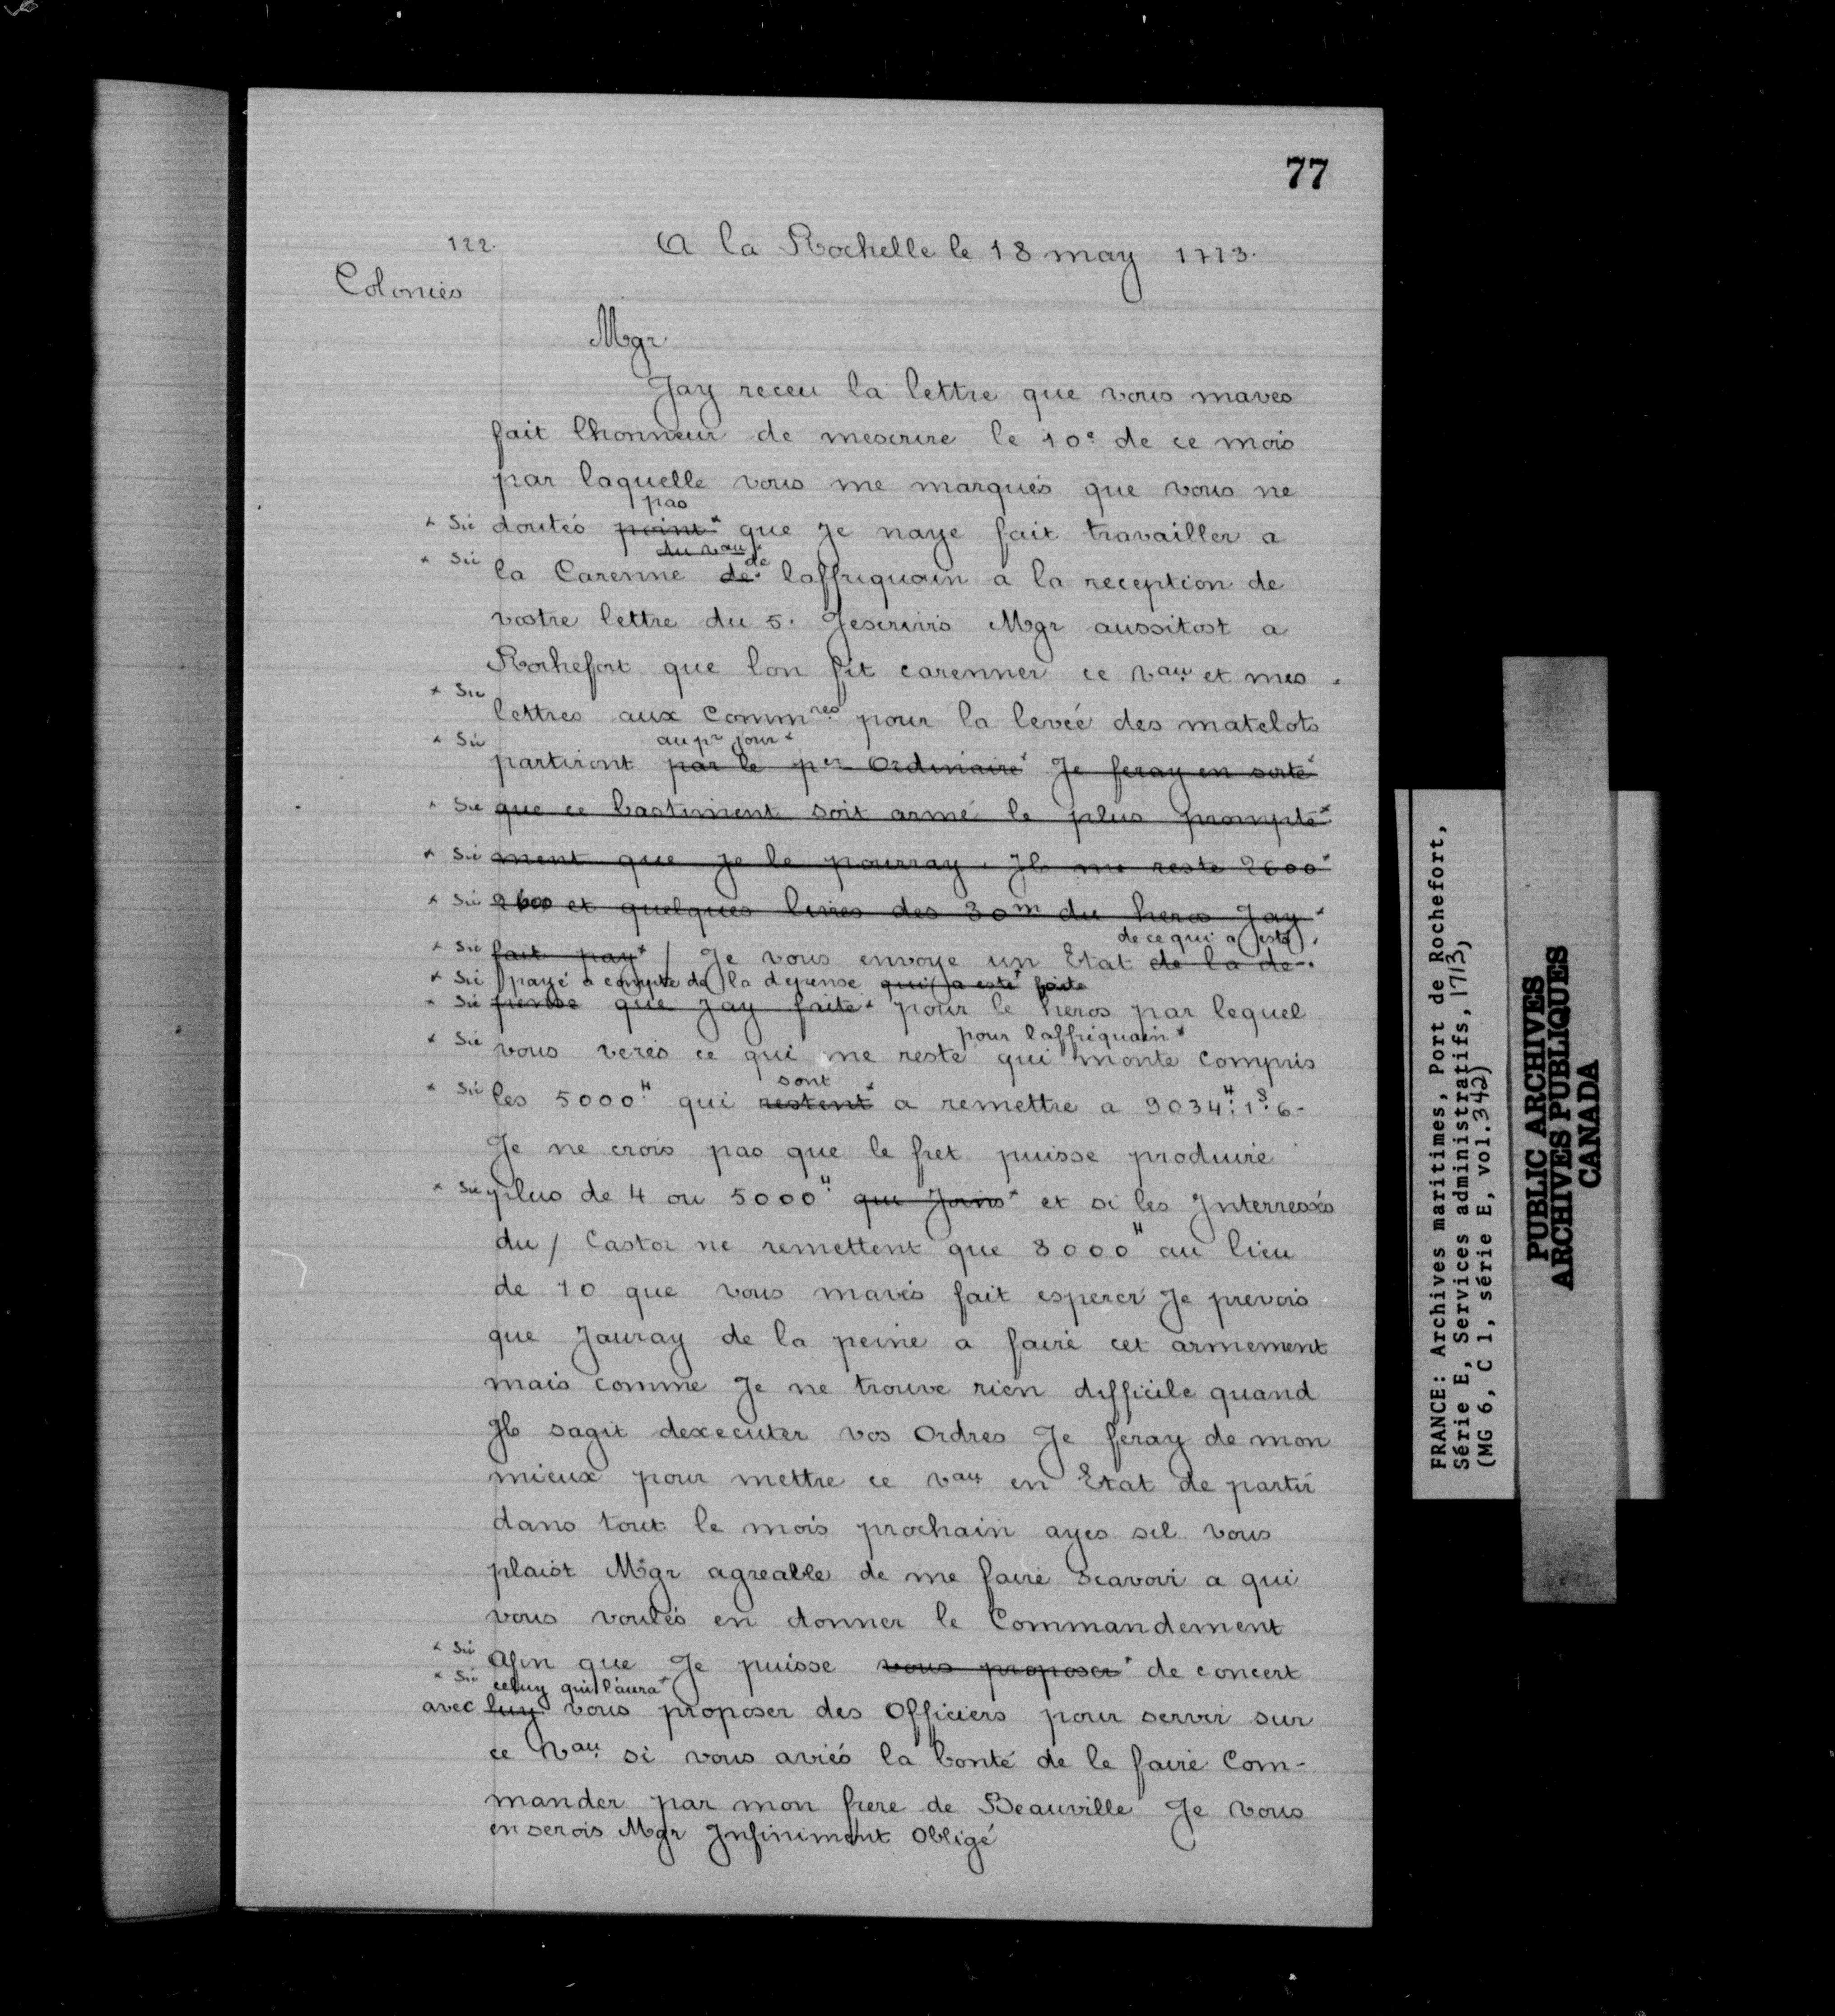 77
122.
A la Rochelle le 18 may 1713.
Colonies
Mgr
Jay receu la lettre que vous maves
fait lhonneur de mescrire le 10e de ce mois
par laquelle vous me marqués que vous ne
pas
* Sic doutés point* que Je naye fait travailler a
du vau* de
* Sic la Carenne de* laffriquain a la reception de
vostre lettre du 5. Jescrivis Mgr aussitost a
Rochefort que lon fit carenner ce vau et mes
* Sic lettres aux Commres pour la levée des matelots
au pr jour*
* Sic partiront par le per Ordinaire* Je feray en sorte*
* Sic que ce bastiment soit armé le plus prompte*
* Sic ment que Je le pourray. Il me reste 2600*
* Sic 2600 et quelques livres des 30m du heros Jay*
de ce qui a esté
* Sic fait pay* / Je vous envoye un Etat de la de-
* Sic payé a compte de la depense qui a esté* faite
* Sic pense que Jay faite* pour le heros par lequel
pour laffriquain*
* Sic vous verés ce qui me reste qui monte compris
sont
* Sic les 5000# qui restent* a remettre a 9034#: 1s: 6-
Je ne crois pas que le fret puisse produire
* Sic plus de 4 ou 5000# que Javis* et si les Interressés
du / Castor ne remettent que 8000# au lieu
de 10 que vous mavés fait esperer Je prevois
que Jauray de la peine a faire cet armement
mais comme Je ne trouve rien difficile quand
Il sagit dexecuter vos Ordres Je feray de mon
mieux pour mettre ce vau en Etat de partir
dans tout le mois prochain ayes sil vous
plaist Mgr agreable de me faire scavoir a qui
vous voulés en donner le Commandement
* Sic afin que Je puisse vous proposer* de concert
* Sic celuy qui laura*
avec luy vous proposer des Officiers pour servir sur
ce Vau si vous aviés la bonté de le faire Com-
mander par mon frere de Beauville Je vous
en serois Mgr Infiniment Obligé
FRANCE: Archives maritimes, Port de Rochefort,
Série E, Services administratifs, 1713,
(MG 6, C 1, série E, vol.342)
PUBLIC ARCHIVES
ARCHIVES PUBLIQUES
CANADA